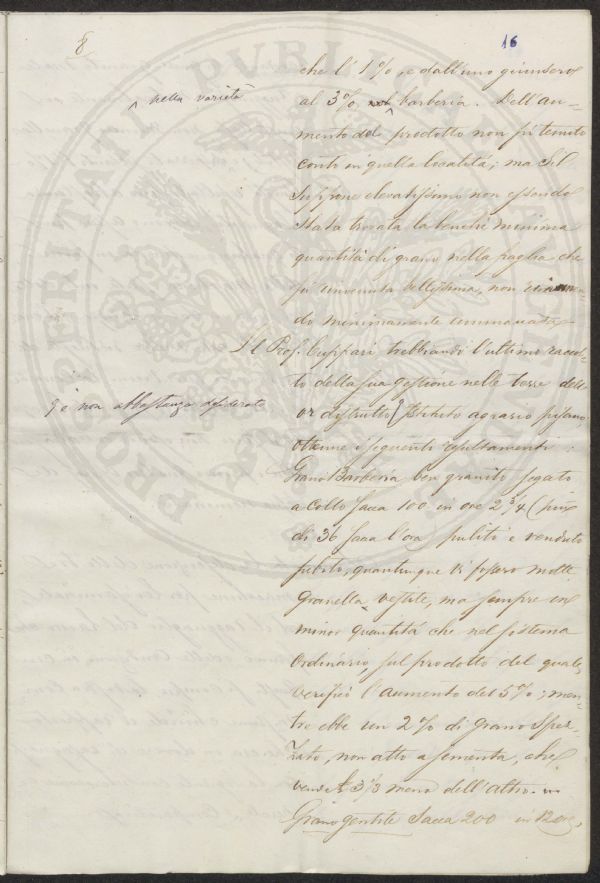 8
16
che l' 1 % e dall'uno giunsero
^ nella varietà
al 3 %, ^ barberia. Dell'au-
mento del prodotto non fu tenuto
conto in quella località; ma si
suppone elevatissimo non essendo
stata trovata la benchè minima
quantità di grano nella paglia che
fu rinvenuta bellissima, non
do minimamente ammaccata.
Il Prof. Cuppari trebbiando l'ultimo raccol-
to della sua gestione nelle terre dell'
e non abbastanza desiderato
or distrutto Istituto agrario pisano
ottenne i seguenti resultamenti:
Grano Barberia ben granito segato
a collo sacca 100 in ore 2 3/4 (più
di 36 sacca l'ora puliti e venduto
subito, quantunque vi fossero molte
granella vestite, ma sempre in
minor quantità che nel sistema
ordinario, sul prodotto del quale
verificò l'aumento del 5 %; men-
tre ebbe un 2 % di grano spez-
zato, non atto a sementa, che
vendè 3 1/3 meno dell'altro.
Grano gentile Sacca 200 in 12 ore,
PROSPERITATI PVBLICAE AVGENDAE